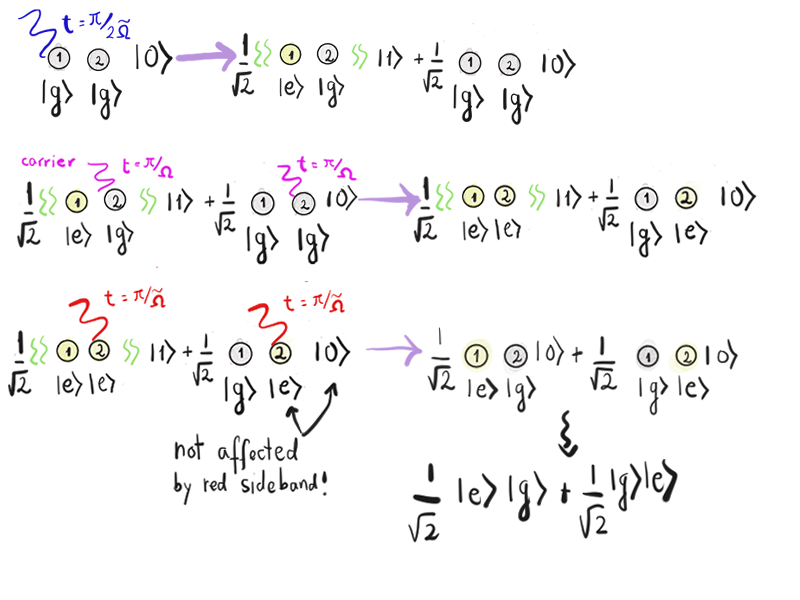 t = π/2Ω̃
1 2 |0⟩ → 1/√2 1 2 |1⟩ + 1/√2 1 2 |0⟩
|g⟩ |g⟩ |e⟩ |g⟩ |g⟩ |g⟩
carrier t = π/Ω t = π/Ω
1/√2 1 2 |1⟩ + 1/√2 1 2 |0⟩ → 1/√2 1 2 |1⟩ + 1/√2 1 2 |0⟩
|e⟩ |g⟩ |g⟩ |g⟩ |e⟩ |e⟩ |g⟩ |e⟩
t = π/Ω̃ t = π/Ω̃
1/√2 1 2 |1⟩ + 1/√2 1 2 |0⟩ → 1/√2 1 2 |0⟩ + 1/√2 1 2 |0⟩
|e⟩ |e⟩ |g⟩ |e⟩ |e⟩ |g⟩ |g⟩ |e⟩
not affected
by red sideband!
1/√2 |e⟩ |g⟩ + 1/√2 |g⟩ |e⟩